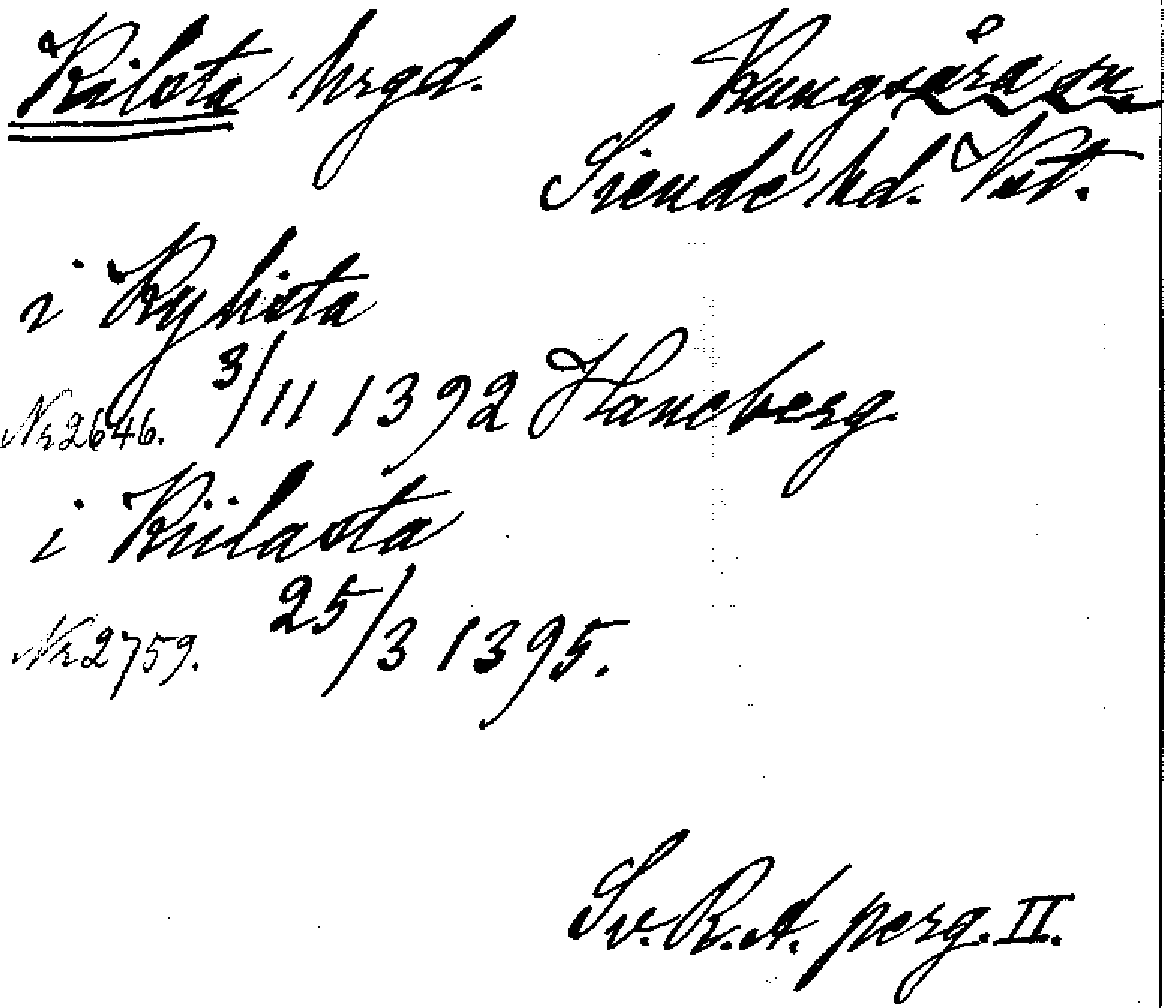 Kilsta hrgd. Kungsåra sn
Siende hd. Vst.
i Kylista
Nr 2646. 3/11 1392 Haneberg
i Kiilasta
Nr 2759. 25/3 1395.
Sv. R.A. perg. II.